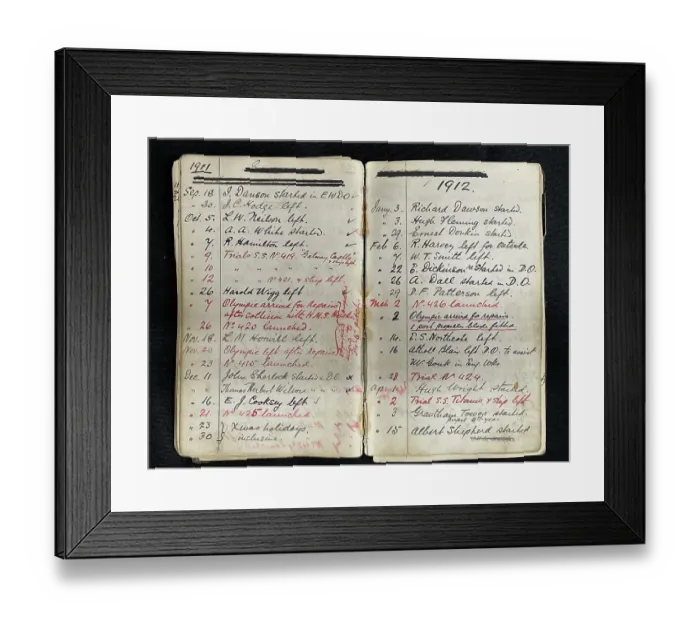 1911
Sep. 18. J. Dawson started in E.W.D.O.
" 30. J.C. Hodge left.
Oct. 5. L.W. Neilson left.
" 4. A.A. White started.
" 7. R. Hamilton left.
" 9. Trials S.S. No 414.
" 10 " " " "
" 12 " " No 401. & Ship left.
" 26 Harold Wigg left
" 7 Olympic arrived for Repairs
after collision with H.M.S.
" 26 No 420 launched.
Nov. 18. L.M. left.
Nov. 20 Olympic left after repairs
" 23 No launched.
Dec. 11 John Sherlock started in D.O. x
" " Thomas x
" 16. E.J. Cooksey left
" 21 No 425 launched
" 23 } Xmas holidays
" 30 } inclusive.
1912.
Jany. 3. Richard Dawson started.
" 3. Hugh Fleming started.
" 29. Ernest Donkin started.
Feb 6. R. Harvey left for
" 7. W.T. Smith left.
" 22 E. Dickinson Started in D.O.
" 26 A. Dall started in D.O.
" 29 D.F. Patterson left.
Mch 2 No 426 launched.
" 2 Olympic arrived for repairs
& port propeller blade fitted
" 14. E.S. Northcote left.
" 16 Atholl Blair left D.O. to assist
in Eng. Wks
" 28 Trial No 424.
April Hugh Wright started.
" 2 Trial S.S. Titanic & Ship left
" 3 Grantham Tower started.
" 15 Albert Shepherd started